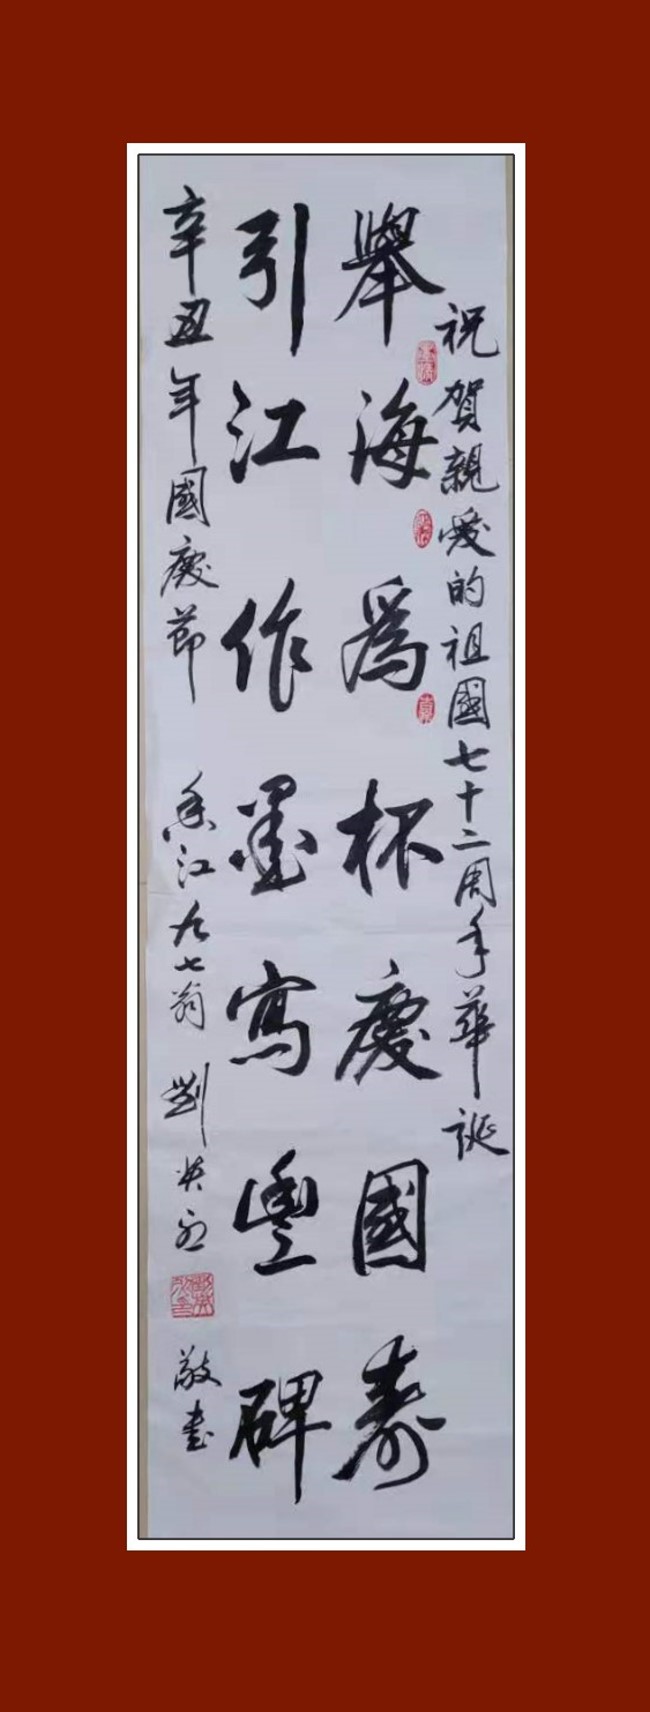 祝贺親愛的祖國七十二周年華誕
舉海爲杯慶國壽
引江作墨寫豐碑
辛丑年國慶節 香江九七翁 劉英 敬書